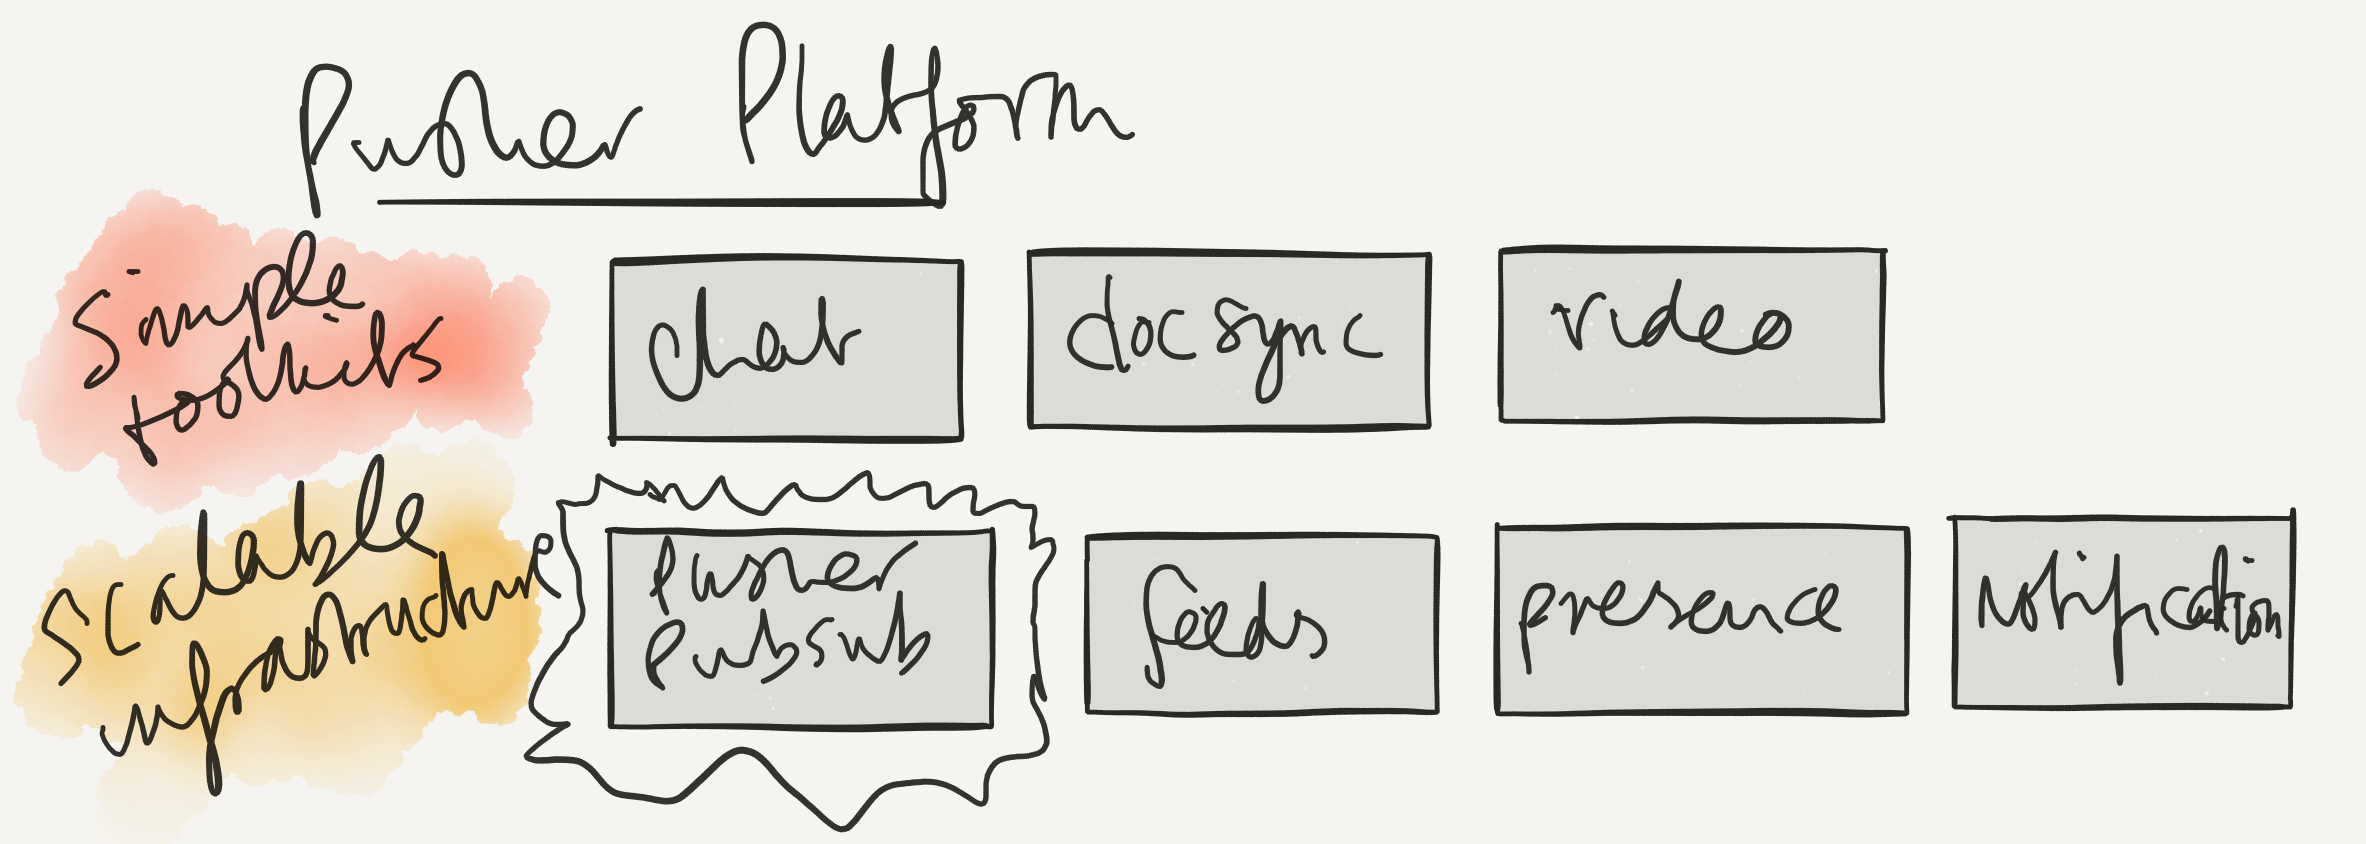 Pusher Platform
simple
toolkits
chat
doc sync
video
scalable
infrastructure
Pusher
Pubsub
feeds
presence
notification